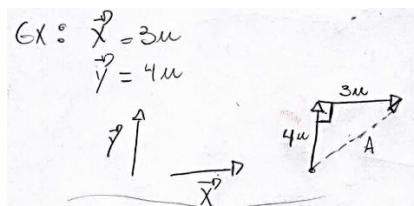 Ex: X⃗ = 3u
Y⃗ = 4u
Y⃗
X⃗
3u
4u
A